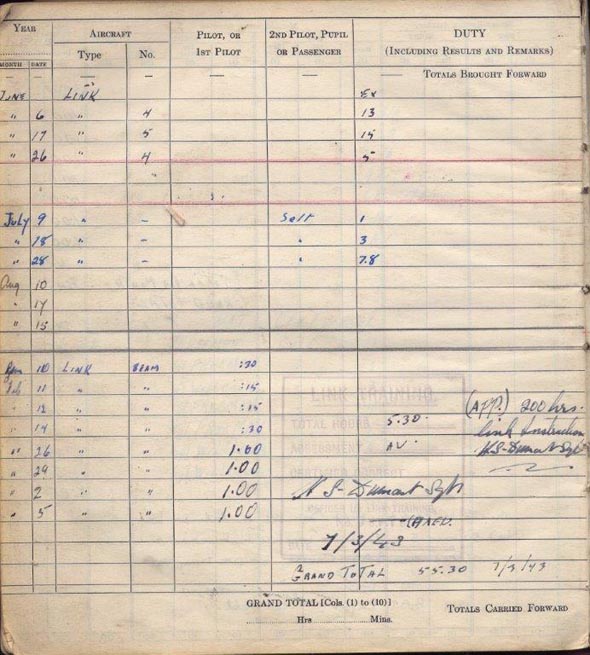 YEAR AIRCRAFT PILOT, OR 2ND PILOT, PUPIL DUTY
Type No. 1ST PILOT OR PASSENGER (INCLUDING RESULTS AND REMARKS)
MONTH DATE
— — — — — — — TOTALS BROUGHT FORWARD
June LINK Ex
" 6 " 4 13
" 17 " 5 15
" 26 " 4 5
July 9 " - Self 1
" 18 " - " 3
" 28 " - " 7.8
Aug 10
" 17
" 15
10 LINK BEAM :30
Feb 11 " " :15
" 12 " " :15
" 14 " " :30
" 26 " " 1.00
" 29 " " 1.00
" 2 " " 1.00
" 5 " " 1.00
LINK TRAINING
TOTAL HOURS 5.30
AV.
(APP.) 200 hrs.
Link Instruction
Sgt
7/3/43
GRAND TOTAL 55.30 7/3/43
GRAND TOTAL [Cols. (1) to (10)] TOTALS CARRIED FORWARD
Hrs Mins.